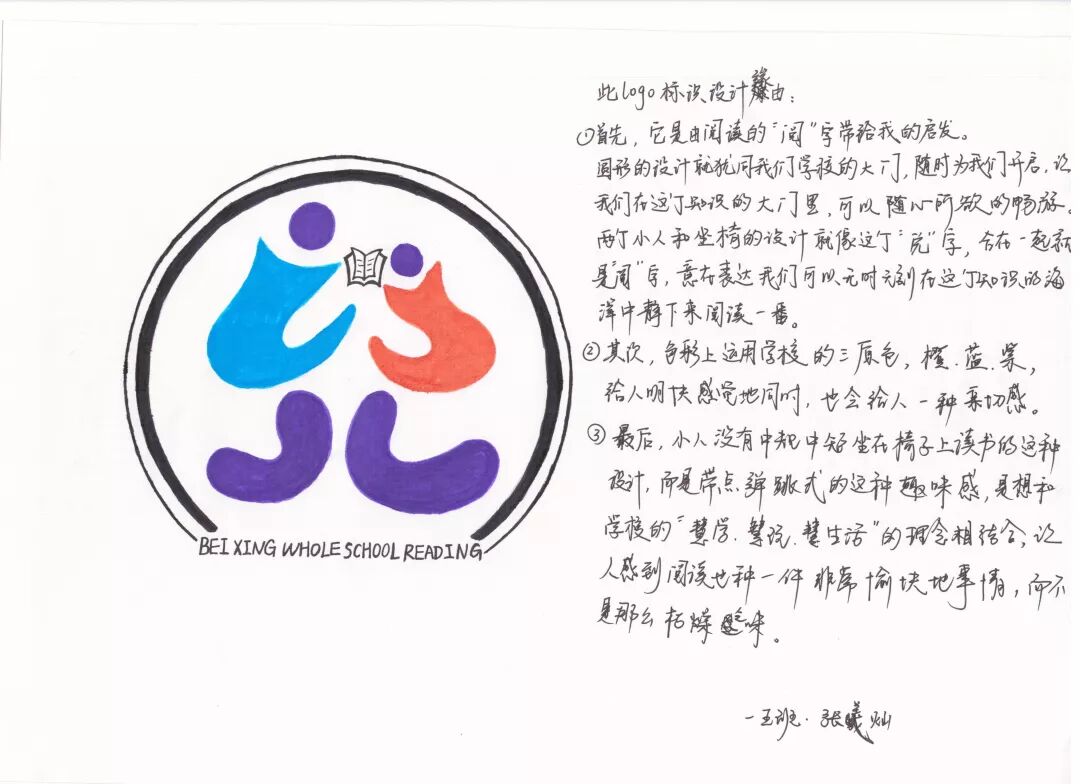 BEI XING WHOLE SCHOOL READING
此logo标识设计缘由:
①首先,它是由阅读的“阅”字带给我的启发。
圆形的设计就犹同我们学校的大门,随时为我们开启,让
我们在这个知识的大门里,可以随心所欲的畅游。
两个小人和坐椅的设计就像这个“兑”字,合在一起就
是“阅”字,意在表达我们可以无时无刻在这个知识的海
洋中静下来阅读一番。
②其次,色彩上运用学校的三原色,橙.蓝.紫,
给人明快感觉地同时,也会给人一种亲切感。
③最后,小人没有中规中矩坐在椅子上读书的这种
设计,而是带点弹跳式的这种趣味感,是想和
学校的“慧学.慧玩.慧生活”的理念相结合,让
人感到阅读也种一件非常愉快地事情,而不
是那么枯燥味。
一五班.张曦灿